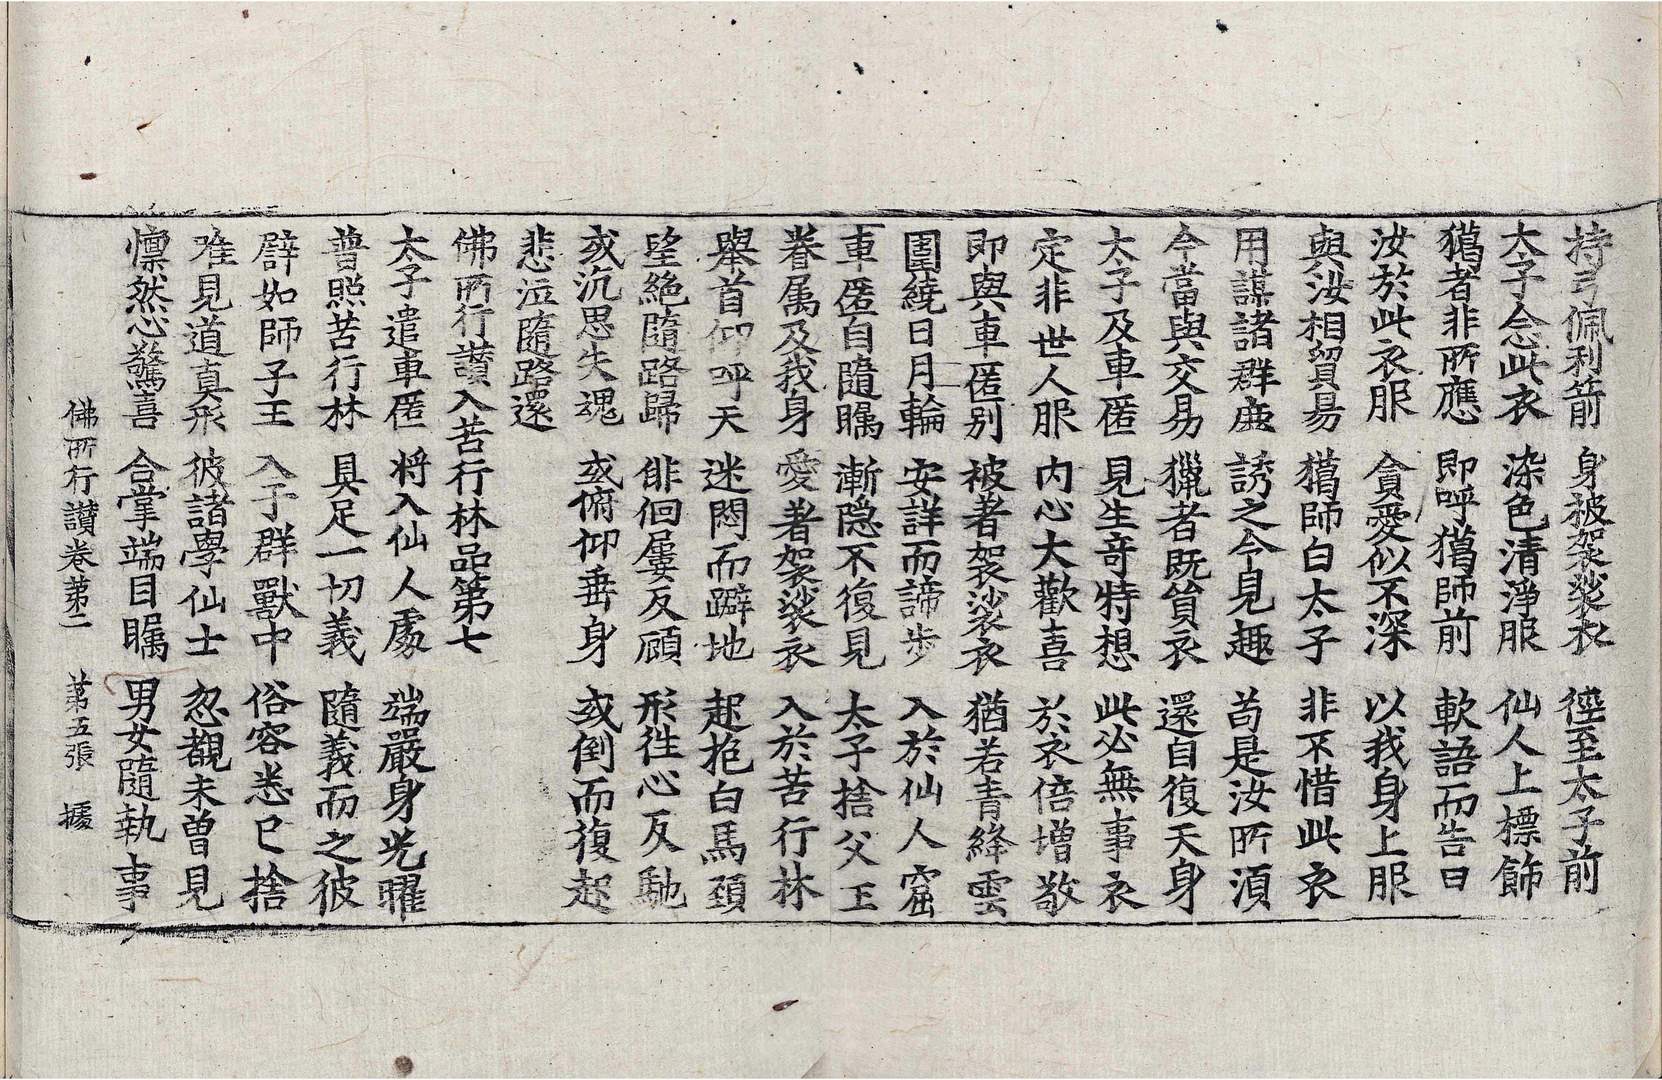 持弓佩利箭 身被袈裟衣 徑至太子前
太子念此衣 染色清淨服 仙人上標飾
獦者非所應 即呼獦師前 軟語而告曰
汝於此衣服 貪愛似不深 以我身上服
與汝相貿易 獦師白太子 非不惜此衣
用謀諸群鹿 誘之令見趣 苟是汝所湏
今當與交易 獵者既貿衣 還自復天身
太子及車匿 見生竒特想 此必無事衣
定非世人服 内心大歡喜 於衣倍增敬
即與車匿別 被著袈裟衣 猶若青絳雲
圍繞日月輪 安詳而諦步 入於仙人窟
車匿自隨矚 漸隐不復見 太子捨父王
眷属及我身 愛著袈裟衣 入於苦行林
舉首仰呼天 迷悶而躃地 起抱白馬頚
望絶隨路歸 俳佪屢反顧 形徃心反馳
或沉思失魂 或俯仰垂身 或倒而復起
悲泣隨路還
佛所行讃入苦行林品第七
太子遣車匿 將入仙人處 端嚴身光曜
普照苦行林 具足一切義 隨義而之彼
譬如師子王 入于群獸中 俗容悉已捨
唯見道真形 彼諸學仙士 忽覩未曽見
懔然心驚喜 合掌端目矚 男女隨執事
佛所行讃卷苐二 苐五張 據